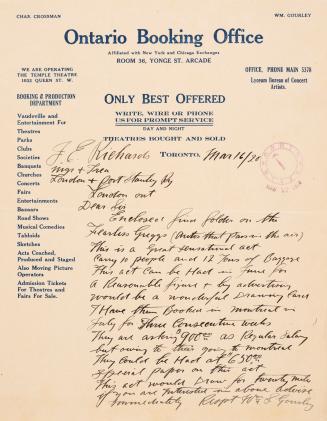 CHAR. CROSSMAN
WM. GOURLEY
Ontario Booking Office
Affiliated with New York and Chicago Exchanges
ROOM 36, YONGE ST. ARCADE
WE ARE OPERATING
THE TEMPLE THEATRE
1032 QUEEN ST. W.
OFFICE, PHONE MAIN 5378
Lyceum Bureau of Concert
Artists.
BOOKING & PRODUCTION
DEPARTMENT
Vaudeville and
Entertainment For
Theatres
Parks
Clubs
Societies
Banquets
Churches
Concerts
Fairs
Entertainments
Bazaars
Road Shows
Musical Comedies
Tabloids
Sketches
Acts Coached,
Produced and Staged
Also Moving Picture
Operators
Admission Tickets
For Theatres and
Fairs For Sale.
ONLY BEST OFFERED
WRITE, WIRE OR PHONE
US FOR PROMPT SERVICE
DAY AND NIGHT
THEATRES BOUGHT AND SOLD
TORONTO, Mar 16/20
J. E. Richards
Mgr & Trea
London & Port Stanley Ry
London ont
Dear Sir
Enclosed find folder on the
Fearless Greggs (autos that Pass in the air)
This is a Great sensational act
Carry 10 people and 12 Tons of Baggage
This act Can be Had in June for
A Reasonable figure & by advertising
would be a wonderful Drawing Card
I Have them Booked in montreal in
July for Three Consecutive weeks
They are asking 900 as Regular Salary
but owing to their going to montreal
They Could be Had at 650
Special paper on this act
This act would Draw for twenty miles
if you are Interested in above advise
Immediately Respt Wm Gourley